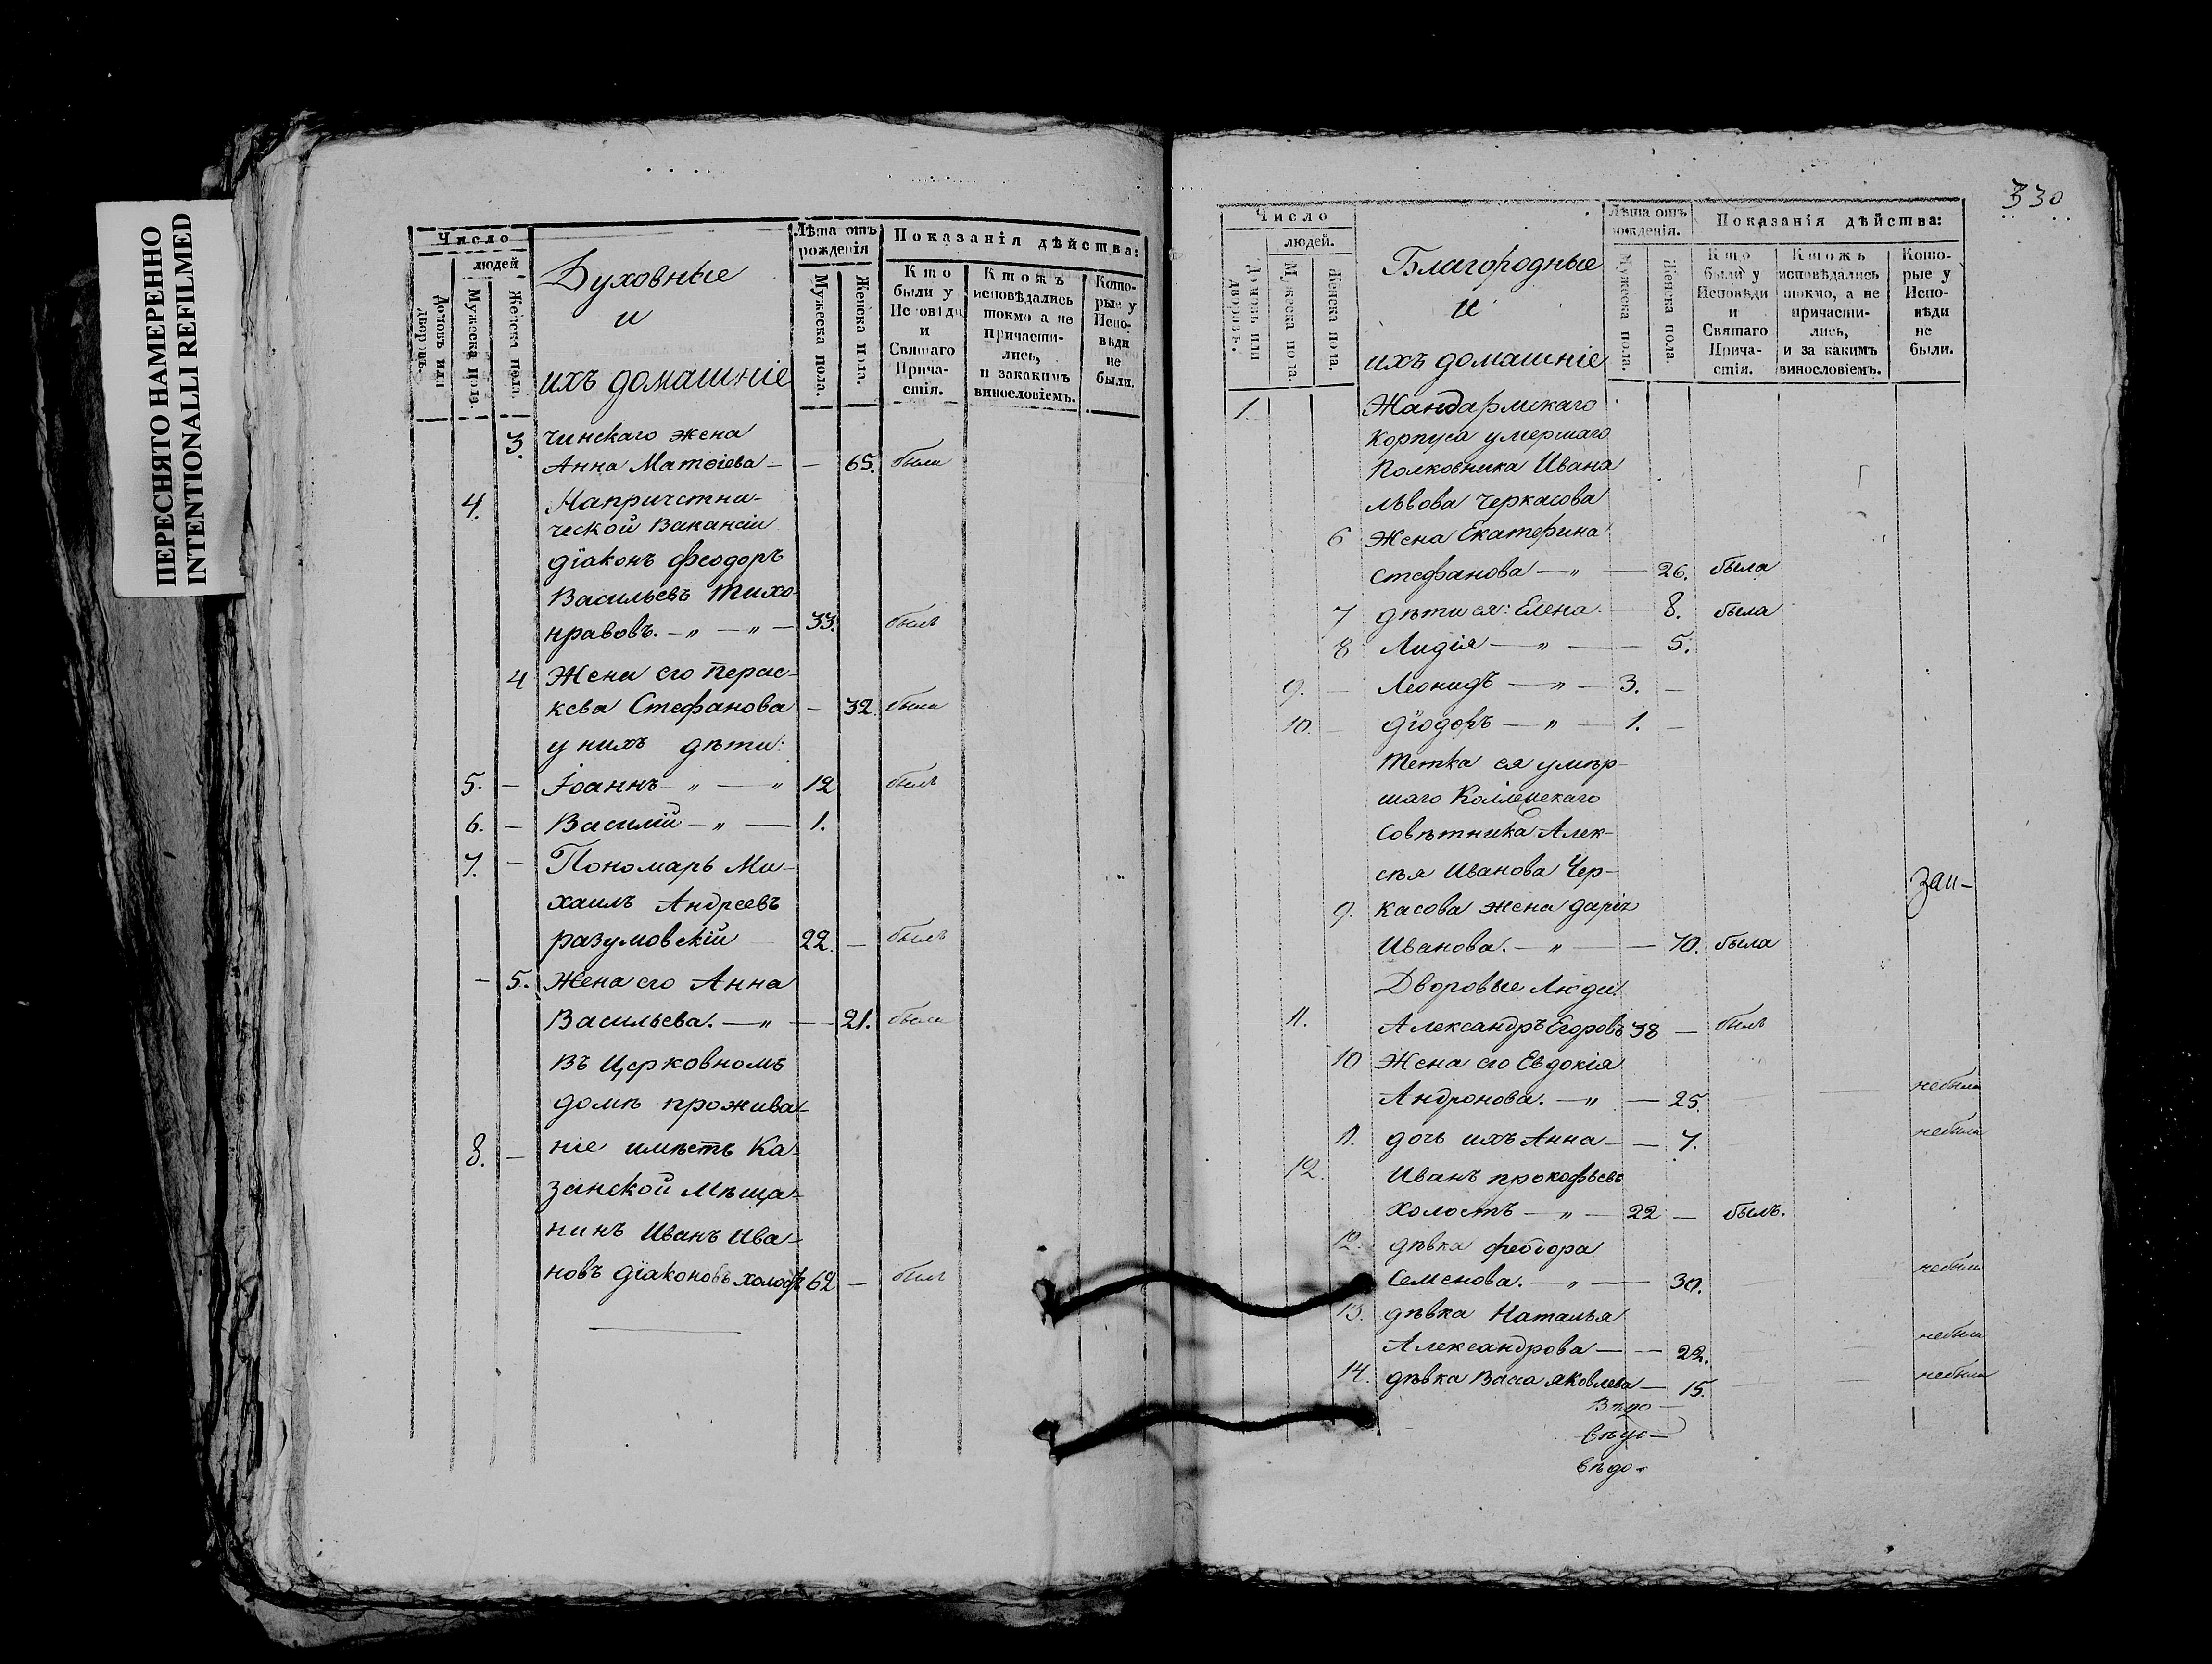 ПЕРЕСНЯТО НАМЕРЕННО
INTENTIONALLI REFILMED
Число
людей
Домовъ или дворовъ.
Мужеска пола.
Женска пола.
Духовные
и
ихъ домашніе
Лѣта отъ рожденія
Мужеска пола.
Женска пола.
Показанія дѣйства:
Кто были у Исповѣди и Святаго Причастія.
Ктожъ исповѣдались токмо а не Причастились, и закакимъ винословіемъ.
Которые у Исповѣди не были.
3. чинскаго жена
Анна Матѳіева — — 65. была
4. Напричетни-
ческой Вакансіи
діаконъ Феодоръ
Васильевъ Тихо-
нравовъ. — „ — „ — 33. былъ
4 Жена его Перас-
кева Стефанова — 32. была
у нихъ дѣти:
5. — Іоаннъ — „ — „ 12 былъ
6. — Василій — „ — 1.
7. — Пономарь Ми-
хаилъ Андреевъ
разумовскій 22. — былъ
— 5. Жена его Анна
Васильева. — „ — — 21. была
Въ Церковномъ
домѣ прожива-
8. — ніе имѣетъ Ка-
занской Мѣща-
нинъ Иванъ Ива-
новъ діаконовъ холостъ 62 — былъ
330
Число
людей.
Домовъ или дворовъ.
Мужеска пола.
Женска пола.
Благородные
и
ихъ домашніе
Лѣта отъ рожденія.
Мужеска пола.
Женска пола.
Показанія дѣйства:
Кто были у Исповѣди и Святаго Причастія.
Ктожъ исповѣдались токмо, а не причастились, и за какимъ винословіемъ.
Которые у Исповѣди не были.
1. Жандармскаго
Корпуса умершаго
Полковника Ивана
Львова Черкасова
6 Жена Екатерина
Стефанова — „ — 26. была
7 дѣти ея: Елена — 8. была
8 Лидія — „ — — 5.
9. — Леонидъ — „ — 3. —
10. — Діодоръ — „ — 1. —
Тетка ея умер-
шаго Коллежскаго
Совѣтника Алек-
сѣя Иванова Чер-
зан-
9. касова жена Дарія
Иванова. — „ — — 70. была
Дворовые Люди
11. Александръ Егоровъ 38 — былъ
10 Жена его Евдокія
Андронова. — „ — 25. небыла
11. дочь ихъ Анна — — 7. небыла
12. Иванъ прокофьевъ
холостъ — „ — 22 — былъ.
12. дѣвка феодора
Семенова. — „ — 30. небыла
13. дѣвка Наталья
Александрова — — 22. небыла
14. дѣвка Васса Яковлева — 15. небыла
Вѣдо-
вѣдо-
вѣдо-